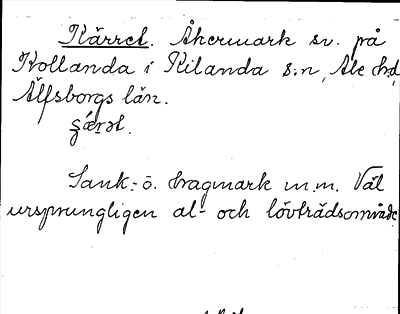 Kärret. Åkermark sv. på
Kollanda i Kilanda s:n, Ale h:d
Älfsborgs län.
Sank- o. hagmark m.m. Väl
ursprungligen al- och lövträdsområde.